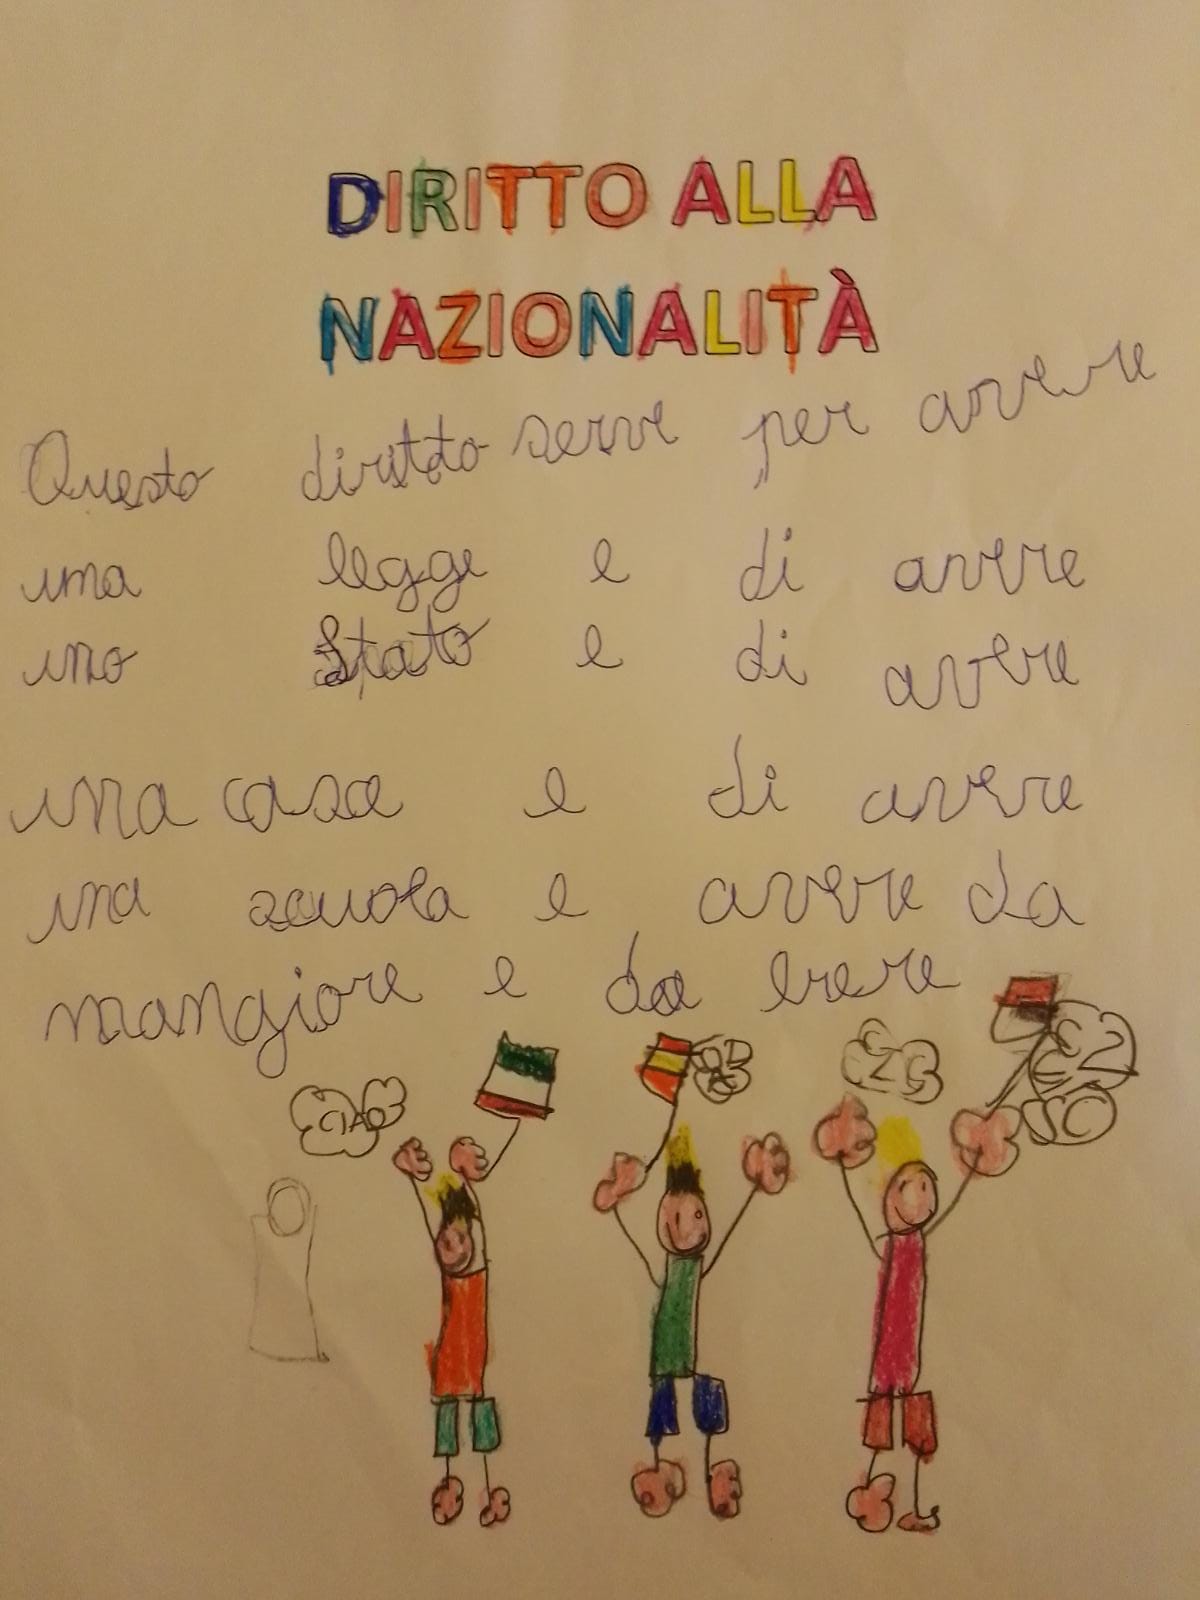 DIRITTO ALLA
NAZIONALITÀ
Questo diritto serve per avere
una legge e di avere
uno Stato e di avere
una casa e di avere
una scuola e avere da
mangiare e da bere
CIAO